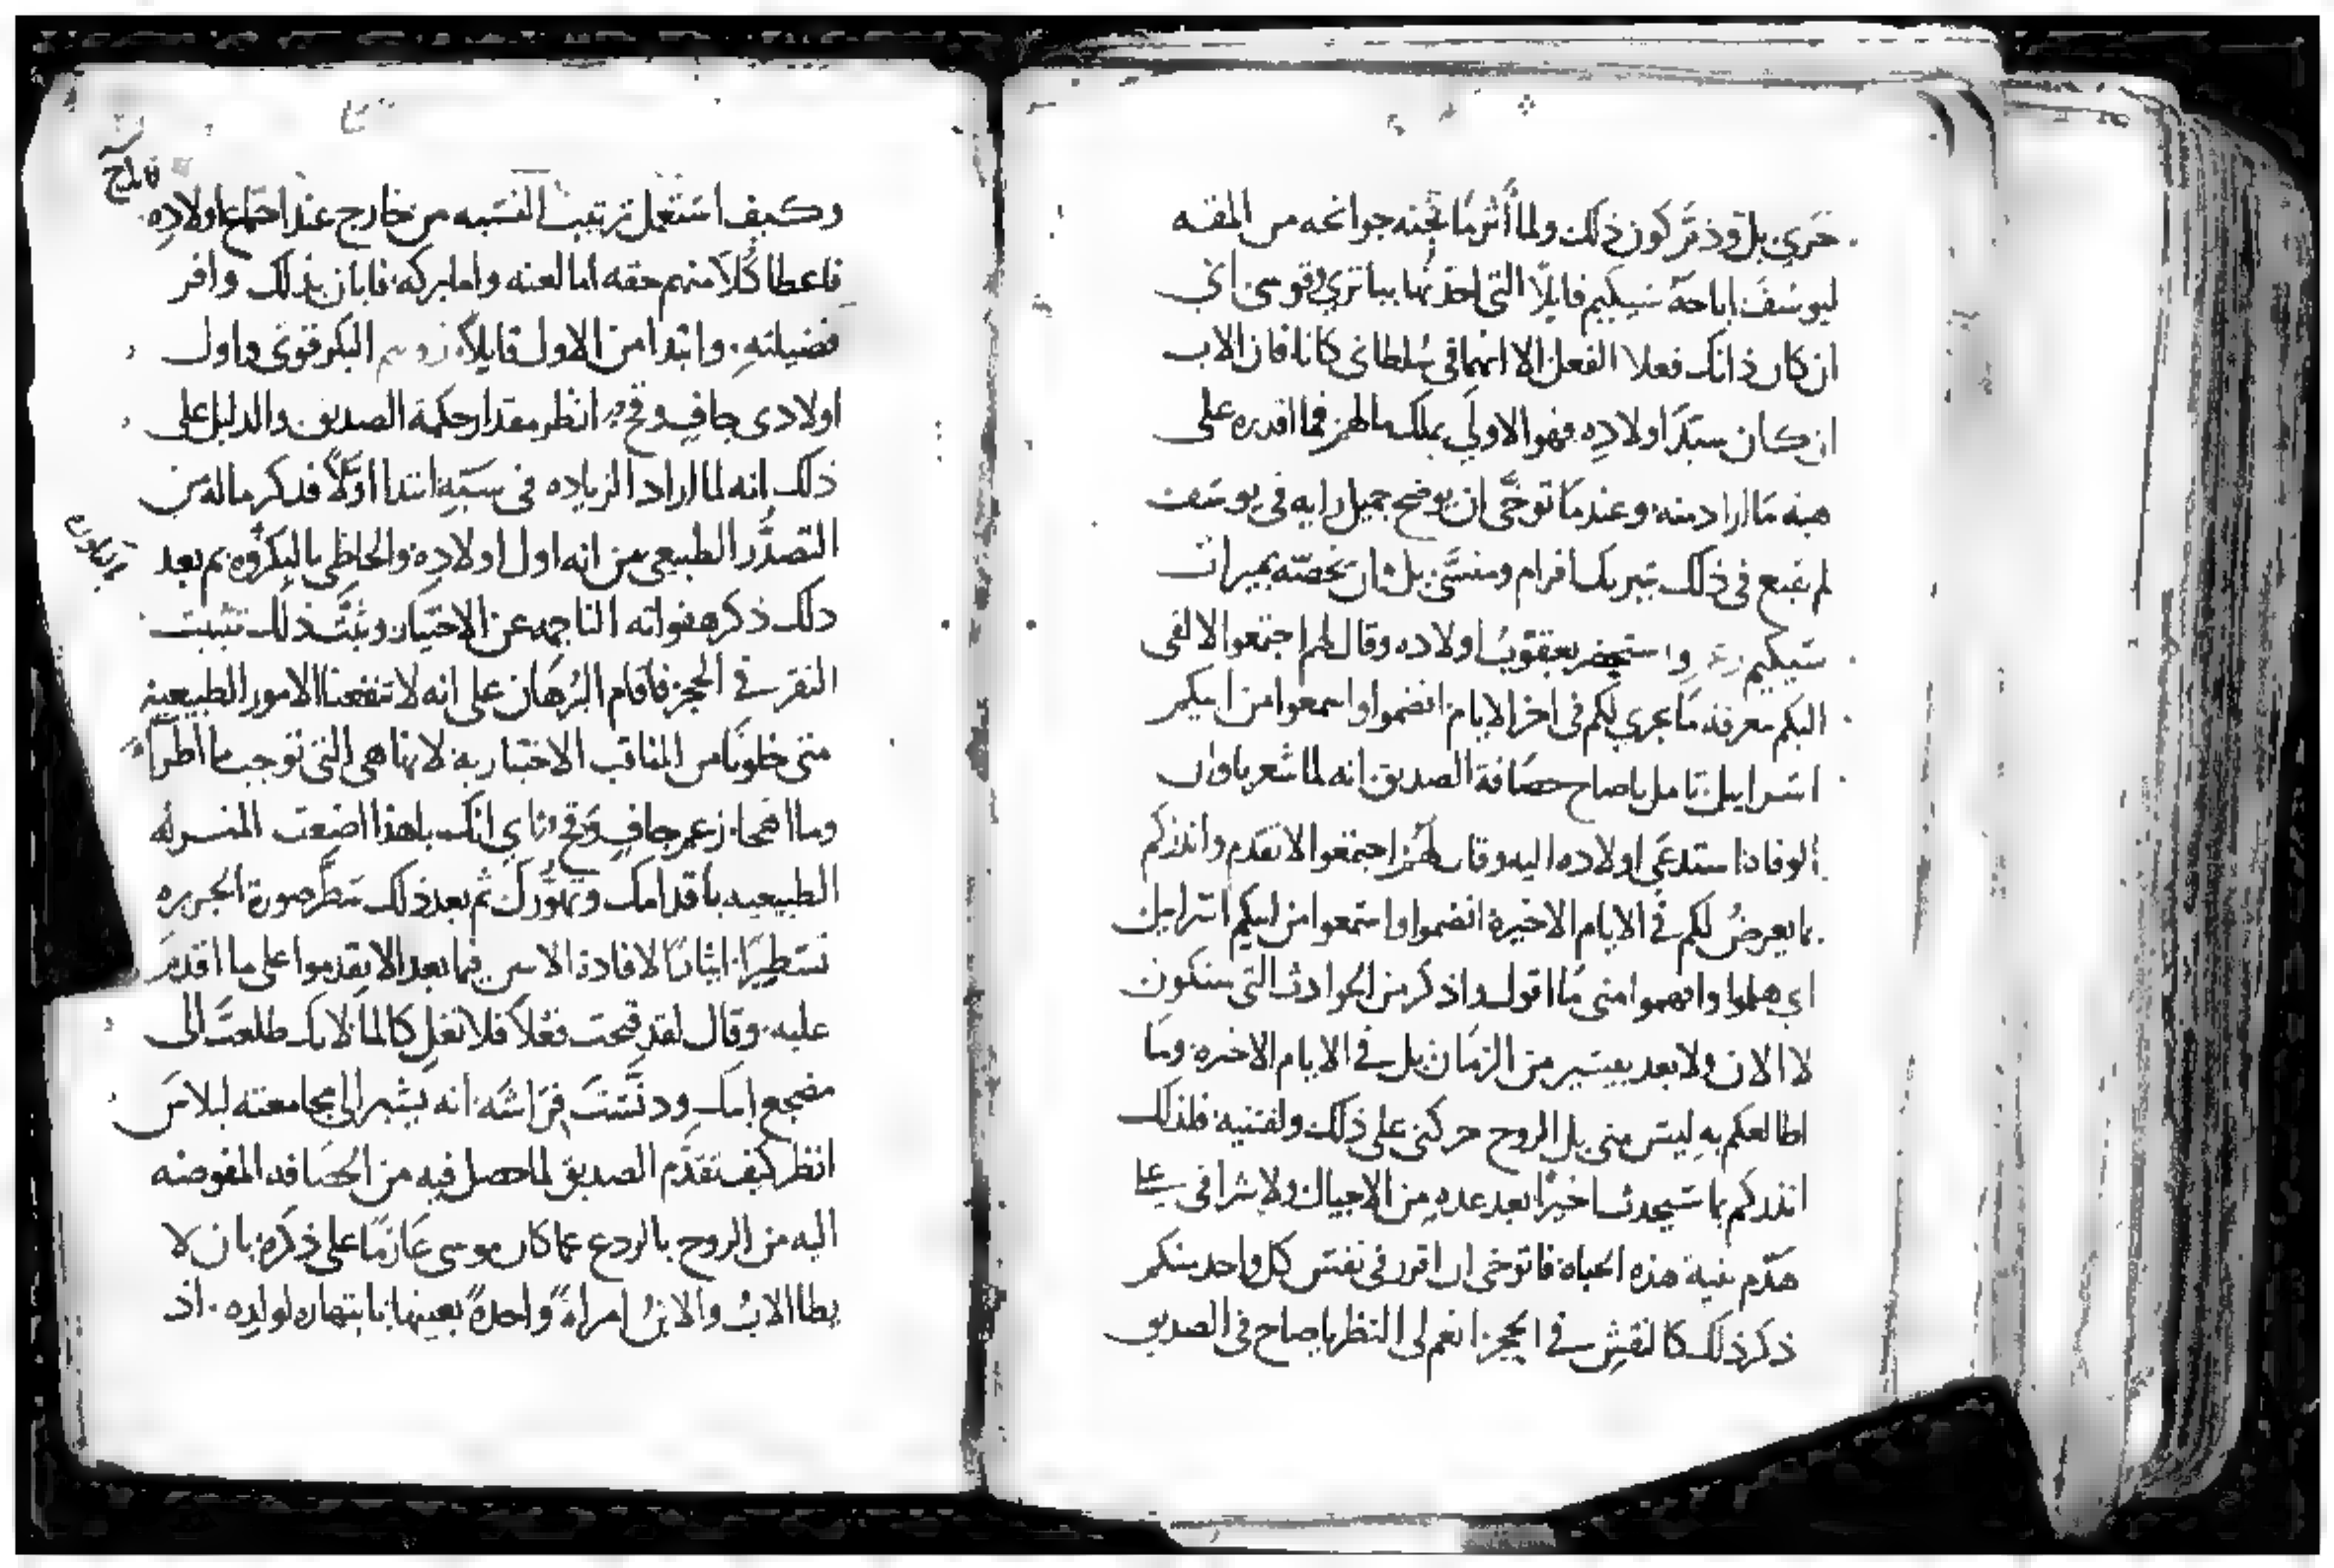 خري بل وذ تركون ذلك ولما أثر ما تجنه جوانحه من المقه
ليوسف اباحة سيكيم قايلا التي اخذتها بباتري وقوسي اي
ان كان ذانك فعلا الفعل الا انهما في سلطاني كانا فان الاب
ان كان سيد اولاده فهو الاولي بملك مالهم فما اقدره على
هبه ما اراد منه وعند ما توخى ان يوضح جميل رايه في يوسف
لم يقنع في ذلك بتبريك افرام ومنسى بل شان تخصه بميراث
سيكيم واستحضر يعقوب اولاده وقال لهم اجتمعوا الالقي
اليكم معرفة ما يجري لكم في اخر الايام انضموا واسمعوا من ابيكم
اسراييل تامل ياصاح حصافة الصديق انه لما شعر باوان
الوفاة استدعى اولاده اليه وقال لهم اجتمعوا الاتقدم وانذركم
بما يعرض لكم في الايام الاخيرة انضموا واستمعوا من ابيكم اسراييل
اي هلموا وافهموا مني ما اقول واذكر من الحوادث التي ستكون
لا الان ولا بعد يسير من الزمان بل في الايام الاخيره وما
اطالعكم به ليس مني بل الروح حركني على ذلك ولقنيه فلذلك
انذركم بما سيحدث اخيرا بعد عده من الاجيال ولاشرافي على
هدم بنية هذه الحياه فاتوخى ان اقرر في نفس كل واحد منكم
ذكر ذلك كالنقش في الحجر انعم لي النظر ياصاح في الصديق
وكيف استعمل ترتيب القسمه من خارج عند اجتماع اولاده
فاعطا كلا منهم حقه اما لعنه واما بركه فابان بذلك وافر
فضيلته وابتدا من الاول قايلا البكر قوتي واول
اولادي جاف وقح انظر مقدار حكمة الصديق والدليل على
ذلك انه لما اراد الزياده في سبه ابتدا اولا فذكر ماله من
التصدر الطبيعي من انه اول اولاده والحاظي بالبكروه ثم بعد
ذلك ذكر هفواته الناجمه عن الاختيار ويثبت ذلك تثبيت
النقر في الحجر فاقام البرهان على انه لا تنفعنا الامور الطبيعيه
متى خلونا من المناقب الاختياريه لانها هي التي توجب اما اطراً
واما هجا زعم جاف وقح اي انك ياهذا اضعت المنزله
الطبيعيه باقدامك وتهورك ثم بعد ذلك سطر صورة الجريره
تسطيرا ايثارا لافادة الاسر فيما بعد الا يقدموا على ما اقدم
عليه وقال لقد قبحت فعلا فلا تغل كالما لانك طلعت الى
مضجع ابيك ودنست فراشه انه يشير الى مجامعته لبلاس
انظر كيف تقدم الصديق لما حصل فيه من الحصافه المفوضه
اليه من الروح بالردع عما كان موسى عازما على ذكره بان لا
يطا الاب والابن امراة واحدة بعينها بانتهاره لولده اذ